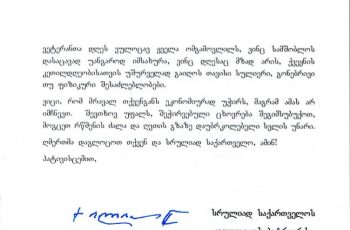 ვეტერანთა დღეს ვულოცავ ყველა ომგამოვლილს, ვინც სამშობლოს
დასაცავად უანგაროდ იმსახურა, ვინც დღესაც მზად არის, ქვეყნის
კეთილდღეობისათვის უშურველად გაიღოს თავისი სულიერი, გონებრივი
თუ ფიზიკური შესაძლებლობები.
ვიცი, რომ მრავალ თქვენგანს ეკონომიურად უჭირს, მაგრამ ამას არ
იმჩნევთ. შევთხოვ უფალს, შეჭირვებული ცხოვრება შეგიმსუბუქოთ,
მოგცეთ რწმენის ძალა და ღვთის გზაზე დაუბრკოლებელი სვლის უნარი.
ღმერთმა დაგლოცოთ თქვენ და სრულიად საქართველო, ამინ!
პატივისცემით,
სრულიად საქართველოს